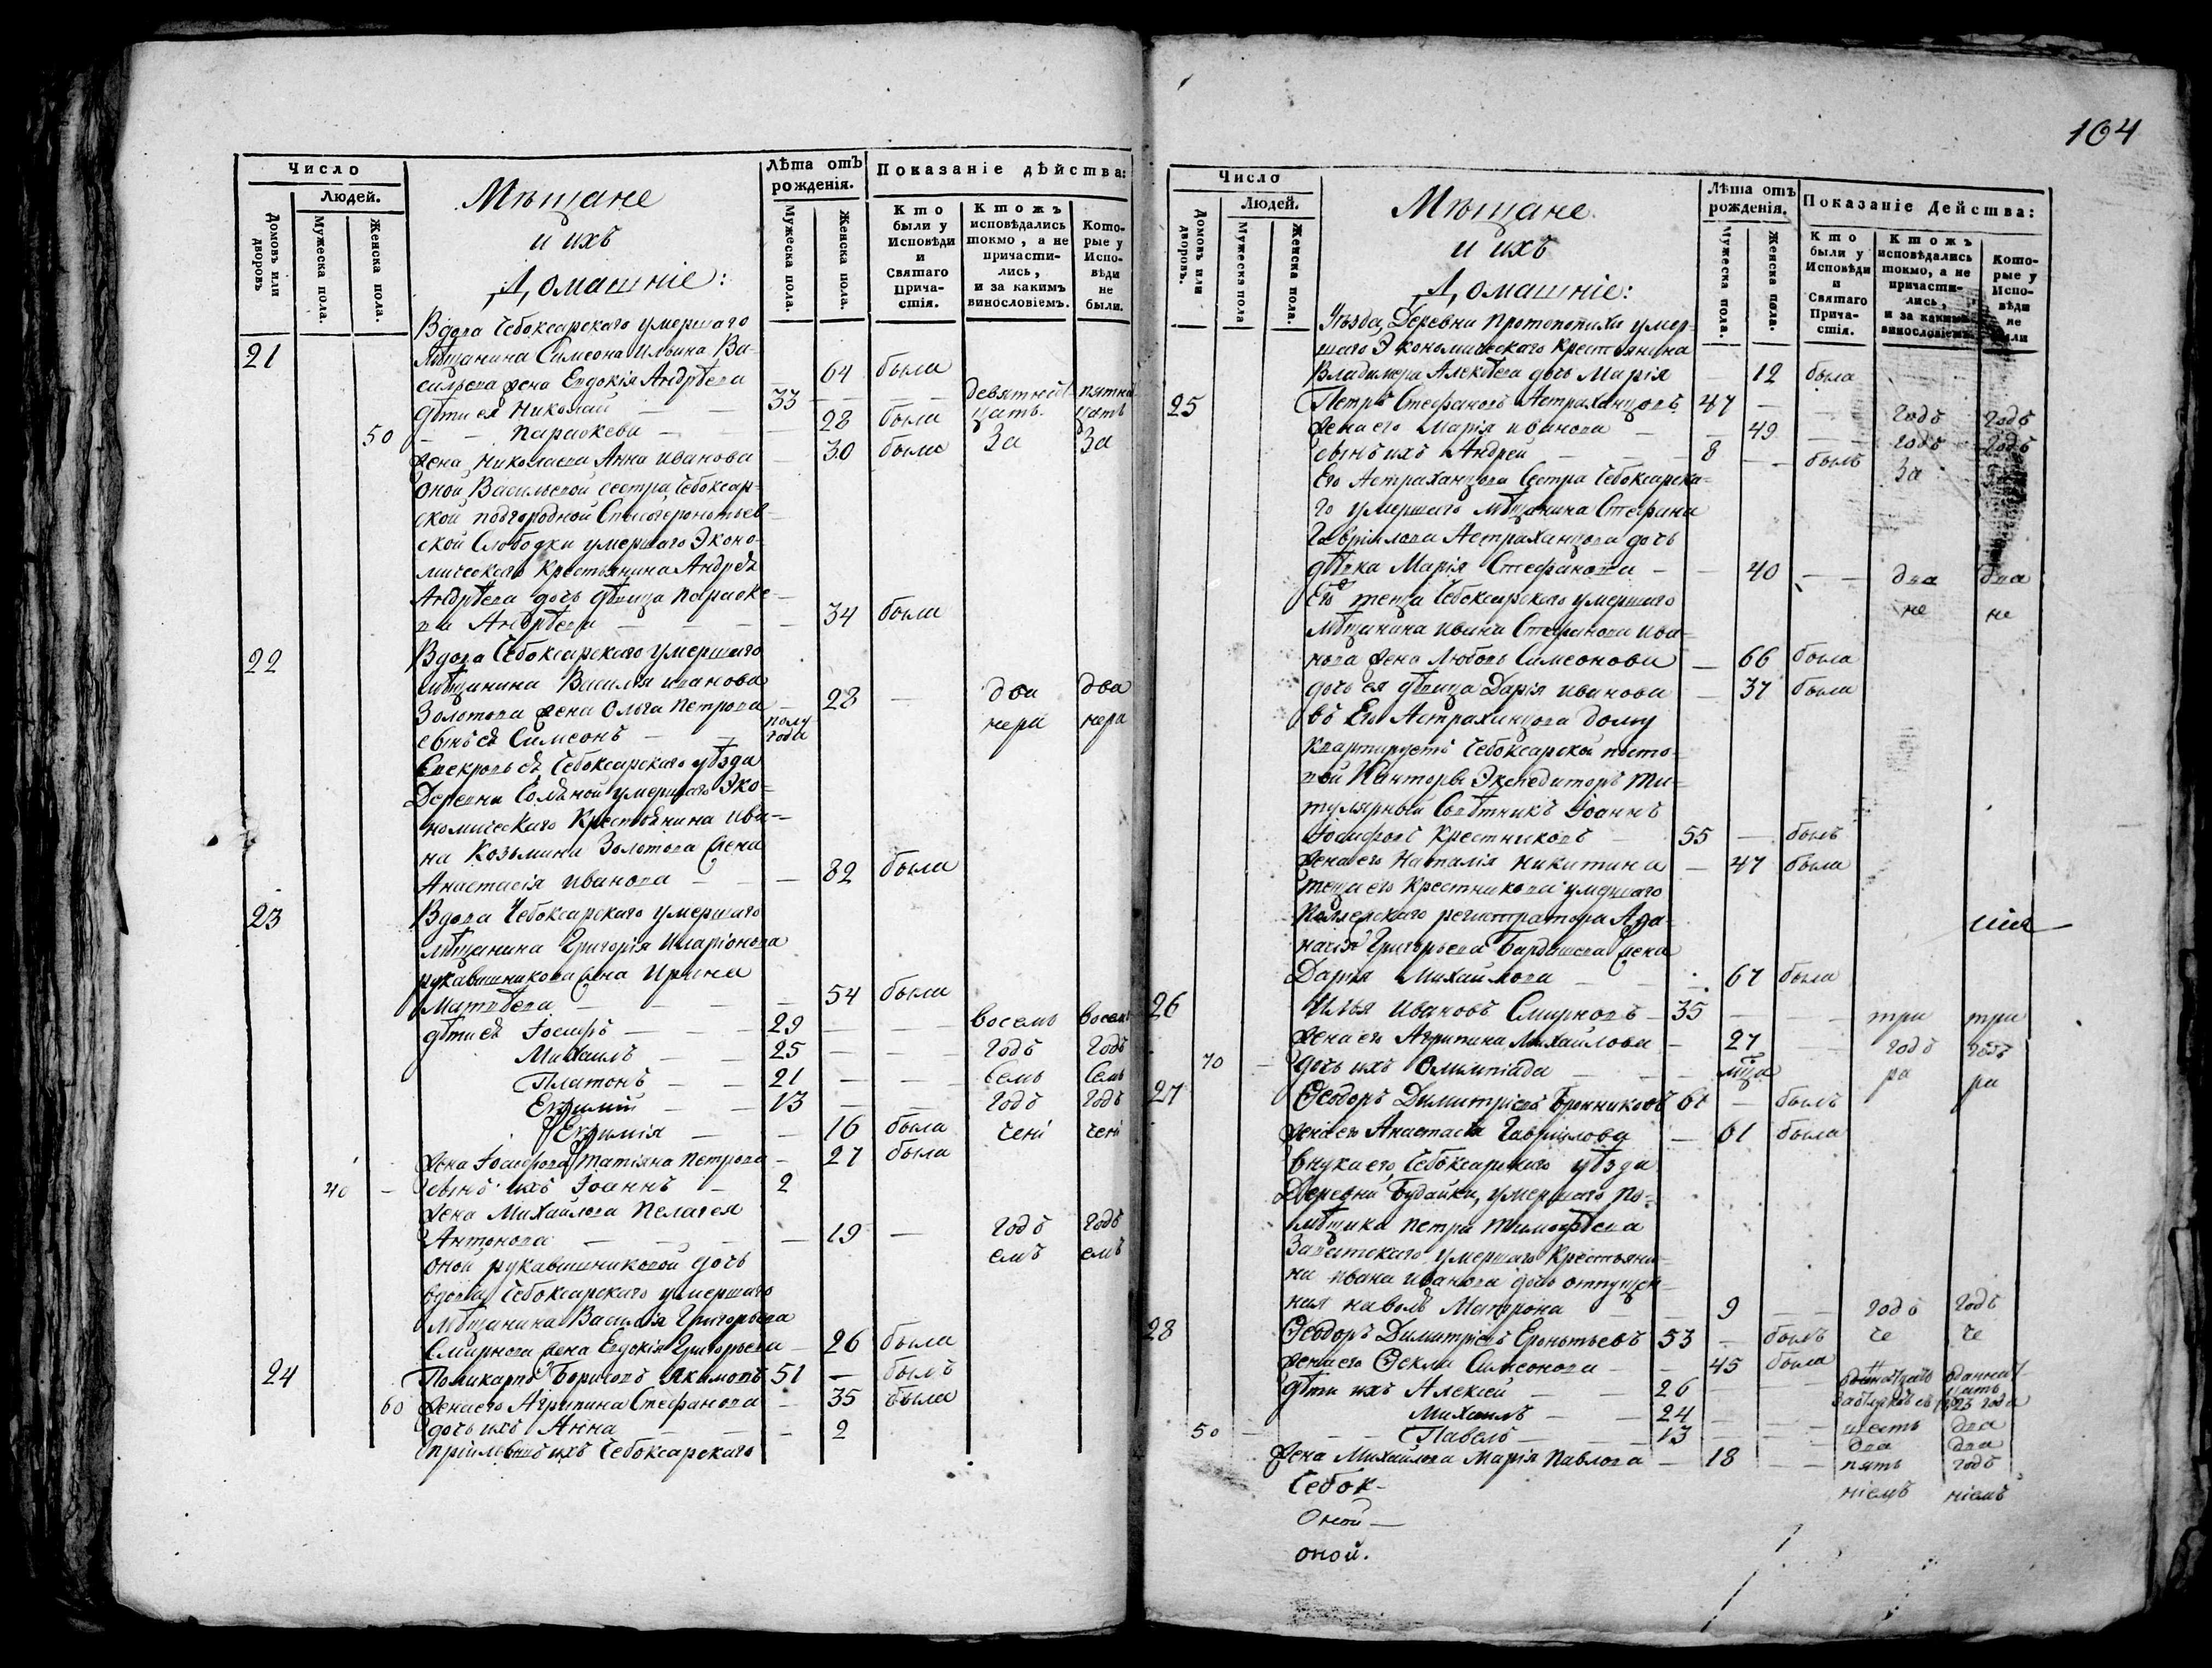 Число
Людей.
Домовъ или дворовъ
Мужеска пола.
Женска пола.
Мѣщане
и ихъ
Домашніе:
Лѣта отъ рожденія.
Мужеска пола.
Женска пола.
Показаніе дѣйства:
Кто были у Исповѣди и Святаго Прича-стія.
Ктожъ исповѣдались токмо, а не причасти-лись, и за какимъ винословіемъ.
Кото-рые у Испо-вѣди не были.
21 Вдова Чебоксарскаго умершаго
Мѣщанина Симеона Ильина Ва-
жена Евдокія Андрѣева 64 была
дѣти ея Николай 33
50 Параскева 28 была
жена Николаева Анна Иванова 30 была За За
Оной Васильевой сестра Чебоксар-
ской подгородной
ской Слободки умершаго Эконо-
мическаго Крестьянина Андрѣя
Андрѣева дочь дѣвица Параске-
ва Андрѣева 34 была
22 Вдова Чебоксарскаго умершаго
мѣщанина Василья Иванова
Золотова жена Ольга Петрова 28 два два
сынъ ея Симеонъ полу года
Свекровь ея Чебоксарскаго уѣзда
Деревни умершаго Эко-
номическаго Крестьянина Ива-
на Козьмина Золотова жена
Анастасія Иванова 82 была
23 Вдова Чебоксарскаго умершаго
мѣщанина Григорія Иларіонова
рукавишникова жена Ирина
Матвѣева 54 была
дѣти ея Іосифъ 29 восемь восемь
Михаилъ 25 годъ годъ
Платонъ 21 семь семь
Евфимій 13 годъ годъ
Евфимія 16 была
жена Іосифова Татіяна Петрова 27 была
40 сынъ ихъ Іоаннъ 2
жена Михайлова Пелагея
Антонова 19 годъ годъ
оной рукавишниковой дочь емъ емъ
вдова Чебоксарскаго умершаго
Мѣщанина Василія Григорьева
Смирнова жена Евдокія Григорьева 26 была
24 Поликарпъ Борисовъ Акимовъ 51 былъ
60 жена его Агрипина Стефанова 35 была
дочь ихъ Анна 2
пріимышъ ихъ Чебоксарскаго
104
Число
Людей.
Домовъ или дворовъ.
Мужеска пола
Женска пола.
Мѣщане
и ихъ
Домашніе:
Лѣта отъ рожденія.
Мужеска пола.
Женска пола.
Показаніе Действа:
Кто были у Исповѣди и Святаго Прича-стія.
Ктожъ исповѣдались токмо, а не причасти-лись, и за какимъ винословіемъ
Кото-рые у Испо-вѣди не были
Уѣзда, Деревни Протопопихи умер-
шаго Экономическаго Крестьянина
Владимера Алексѣева дочь Марія 12 была
25 Петръ Стефановъ Астраханцовъ 47 годъ годъ
жена его Марія Иванова 49 годъ годъ
сынъ ихъ Андрей 8 былъ За
Его Астраханцова Сестра Чебоксарска-
го умершаго мѣщанина Стефана
Гавриилова Астраханцова дочь
дѣвка Марія Стефанова 40 два два
Его теща Чебоксарскаго умершаго не не
мѣщанина Ивана Стефанова Ива-
нова жена Любовь Симеонова 66 была
дочь ея дѣвица Дарія Иванова 37 была
въ Его Астраханцова дому
квартируетъ Чебоксарской почто-
вой Канторы Экспедиторъ Ти-
тулярный Совѣтникъ Іоаннъ
Іосифовъ Крестниковъ 55 былъ
жена его Наталія Никитина 47 была
теща его Крестникова умершаго
Коллежскаго регистратора Афа-
насія Григорьева жена
Дарія Михайлова 67 была
26 Илья Ивановъ Смирновъ 35 три три
жена его Агрипина Михайлова 27 годъ годъ
70 дочь ихъ Олимпіада ра ра
27 Ѳеодоръ Димитріевъ Бронниковъ 61 былъ
жена его Анастасія Гавриилова 61 была
внука его, Чебоксарскаго уѣзда
Деревни Будайки, умершаго по-
мѣщика Петра Тимофѣева
умершаго Крестьяни-
на Ивана Иванова дочь отпущен-
ная на волю Матрона 9 годъ годъ
28 Ѳеодоръ Димитріевъ Еронтьевъ 53 былъ че че
жена его Ѳекла Симеонова 45 была
дѣти ихъ Алексей 26
Михаилъ 24 шесть два
50 Павелъ 13 два два
жена Михайлова Марія Павлова 18 пять годъ
Чебок- ніемъ ніемъ
Оной
оной.